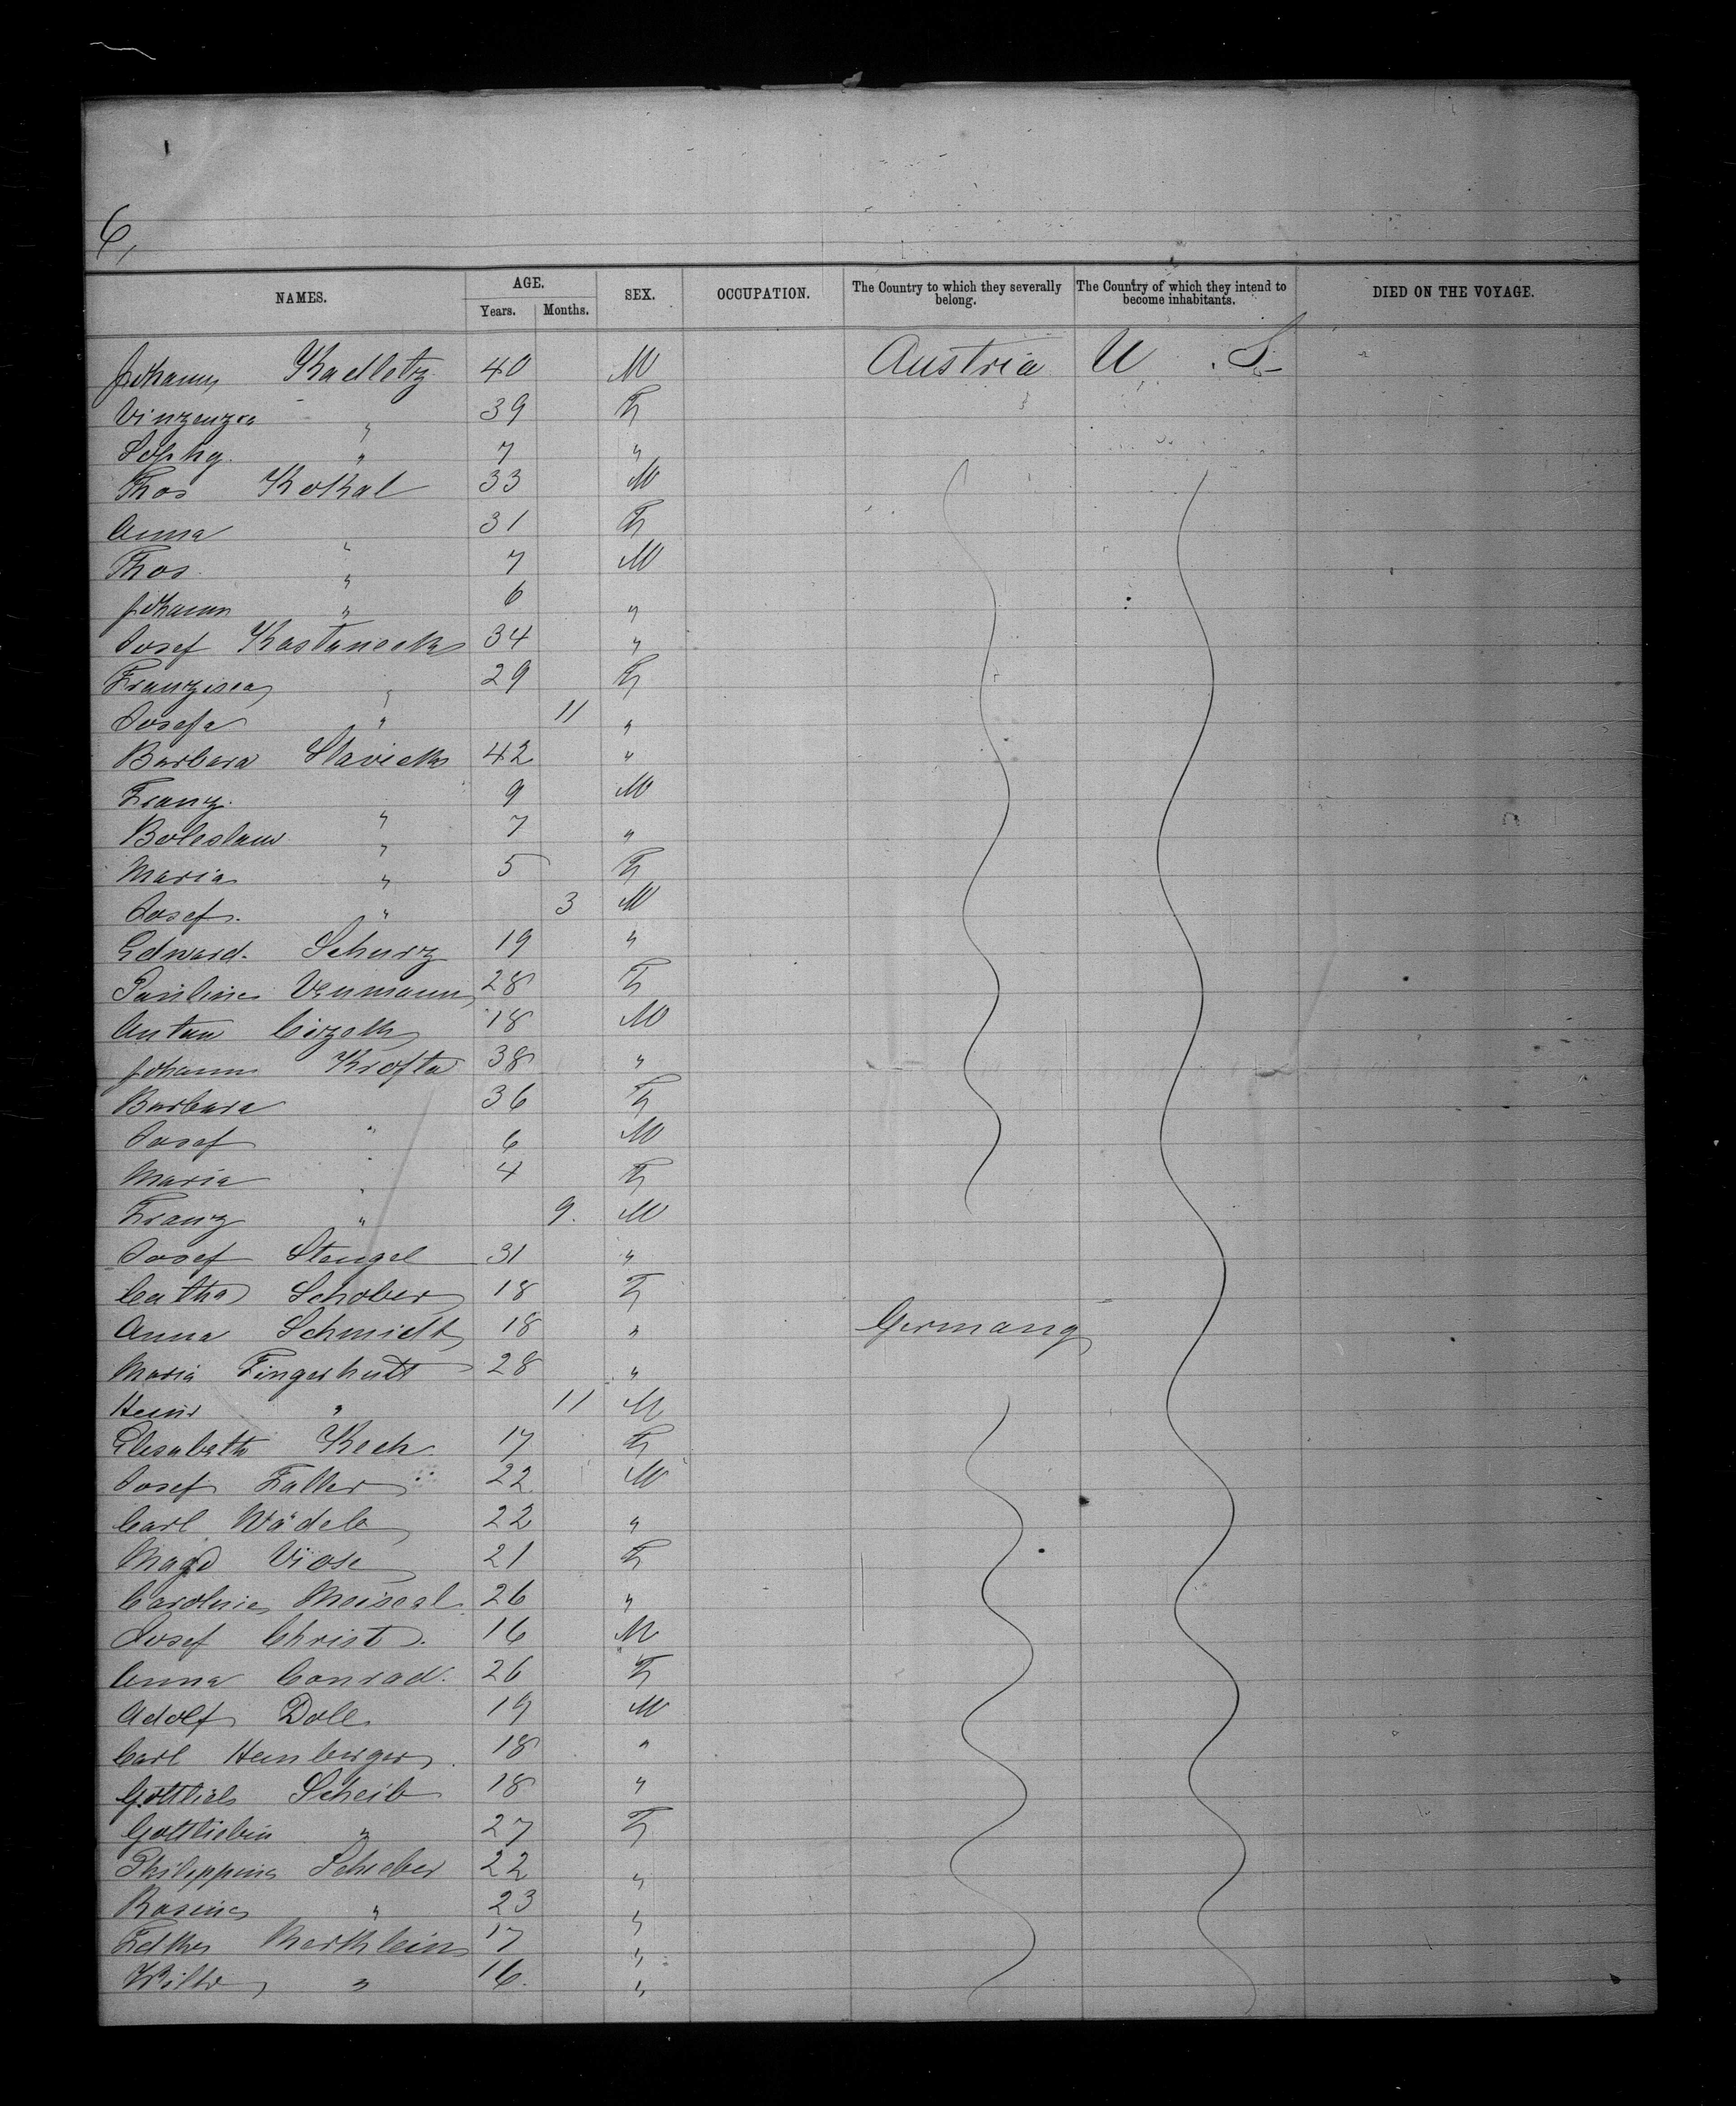 6,
NAMES. AGE. SEX. OCCUPATION. The Country to which they severally belong. The Country of which they intend to become inhabitants. DIED ON THE VOYAGE.
Years. Months.
Johann Kadletz 40 M Austria U. S.
Vinzenzia " 39 F
" 7 "
Thos Kokal 33 M
Anna " 31 F
Thos. " 7 M
Johann " 6 "
Josef 34 "
Franzisca " 29 F
Josefa " 11 "
Barbara Slavick 42 "
Franz " 9 M
Boleslaw " 7 "
Maria " 5 F
Josef. " 3 M
Edward. Schurz 19 "
Pauline 28 F
Anton Cizek 18 M
Johann Krofta 38 "
Barbara 36 F
Josef " 6 M
Maria " 4 F
Franz " 9. M
Josef Stengel 31 "
Catha Schober 18 F
Anna Schmidt 18 " Germany
Maria Fingerhutt 28 "
Heinr " 11 M
Elisabeth Koch 17 F
Josef Faller 22 M
Carl Wädele 22 "
Magd 21 F
Caroline Meiseal 26 "
Josef Christ. 16 M
Anna Conrad. 26 F
Adolf Doll 19 M
Carl 18 "
Gottlieb Scheib 18 "
Gottliebin " 27 F
Philippina Schieber 22 "
Rosina " 23 "
17 "
Wilhe " 16. "